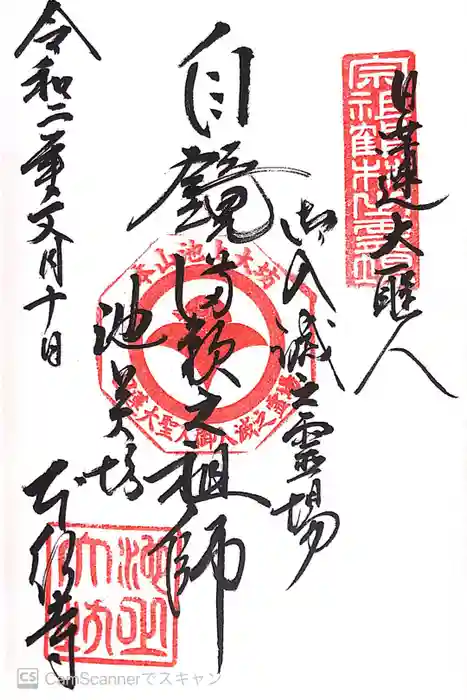 日蓮大聖人
御入滅之霊場
自鏡満願之祖師
池上大坊
本行寺
令和二年文月十日
宗祖鶴林之霊場
本山池上大坊
日蓮大聖人御入滅之霊場
池上大坊
CS CamScannerでスキャン